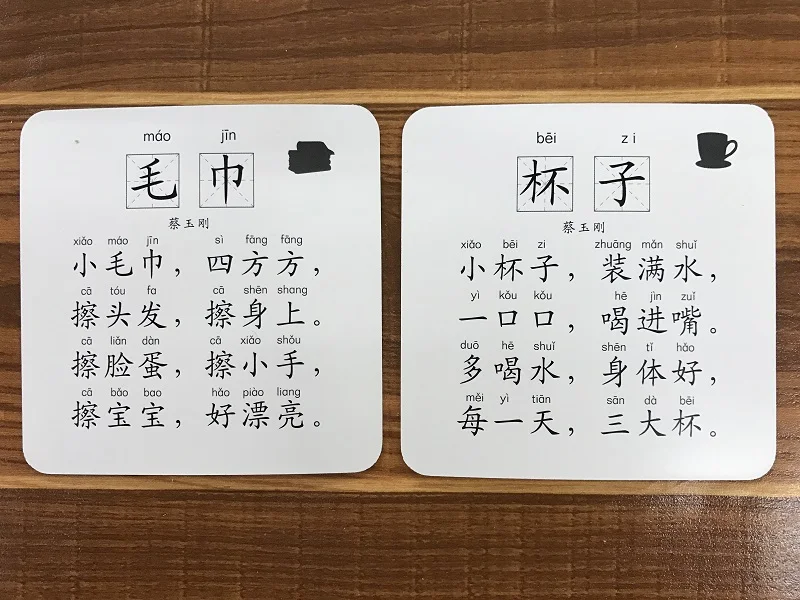 máo jīn
毛巾
蔡玉刚
xiǎo máo jīn sì fāng fāng
小毛巾，四方方，
cā tóu fa cā shēn shang
擦头发，擦身上。
cā liǎn dàn cā xiǎo shǒu
擦脸蛋，擦小手，
cā bǎo bao hǎo piào liang
擦宝宝，好漂亮。
bēi zi
杯子
蔡玉刚
xiǎo bēi zi zhuāng mǎn shuǐ
小杯子，装满水，
yì kǒu kǒu hē jìn zuǐ
一口口，喝进嘴。
duō hē shuǐ shēn tǐ hǎo
多喝水，身体好，
měi yì tiān sān dà bēi
每一天，三大杯。